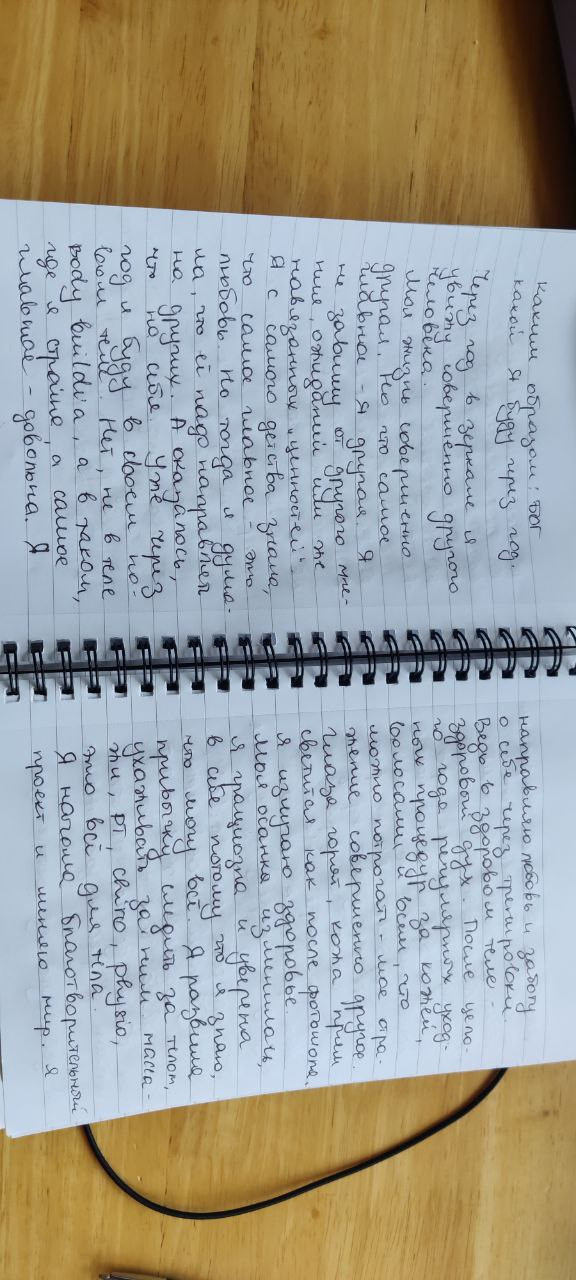 Каким образом: Бог
какой я буду через год.
Через год в зеркале я
увижу совершенно другого
человека.
Моя жизнь совершенно
другая. Но что самое
главное - я другая. Я
не завишу от другого мне-
ния, ожиданий или же
навязанных "ценностей"
Я с самого детства знала,
что самое главное - это
любовь. Но тогда я дума-
ла, что её надо направлять
на других. А оказалось,
что на себя. Уже через
год я буду в своем но-
вом теле. Нет, не в теле
body builder'a, а в таком,
где я стройна, а самое
главное - довольна. Я
направляю любовь и заботу
о себе через тренировки
Ведь в здоровом теле -
здоровый дух. После цело-
го года регулярных уход-
ных процедур за кожей,
волосами и всем, что
можно потрогать - мое отра-
жение совершенно другое.
Глаза горят, кожа прям
светится как после фотошопа.
Я излучаю здоровье.
Моя осанка изменилась,
я грациозна и уверена
в себе потому что я знаю,
что могу всё. Я развила
привычку следить за телом,
ухаживать за ним. масса-
жи, PT, chiro, physio,
это всё для тела.
Я начала благотворительный
проект и меняю мир. Я